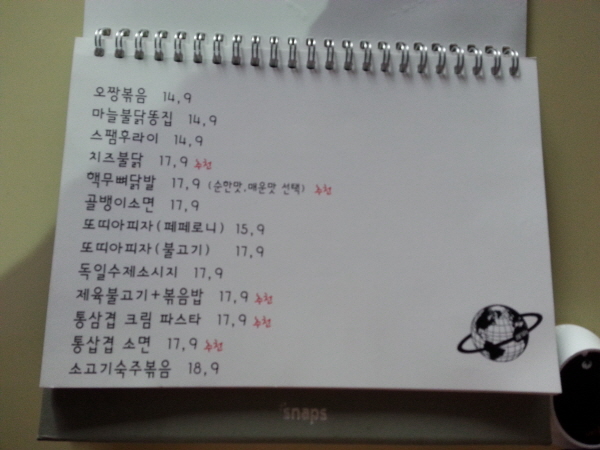 오짱볶음 14,9
마늘불닭똥집 14,9
스팸후라이 14,9
치즈불닭 17,9 추천
핵무뼈닭발 17,9 (순한맛,매운맛 선택) 추천
골뱅이소면 17,9
또띠아피자(페페로니) 15,9
또띠아피자(불고기) 17,9
독일수제소시지 17,9
제육불고기+볶음밥 17,9 추천
통삼겹 크림 파스타 17,9 추천
통삽겹 소면 17,9 추천
소고기숙주볶음 18,9
snaps